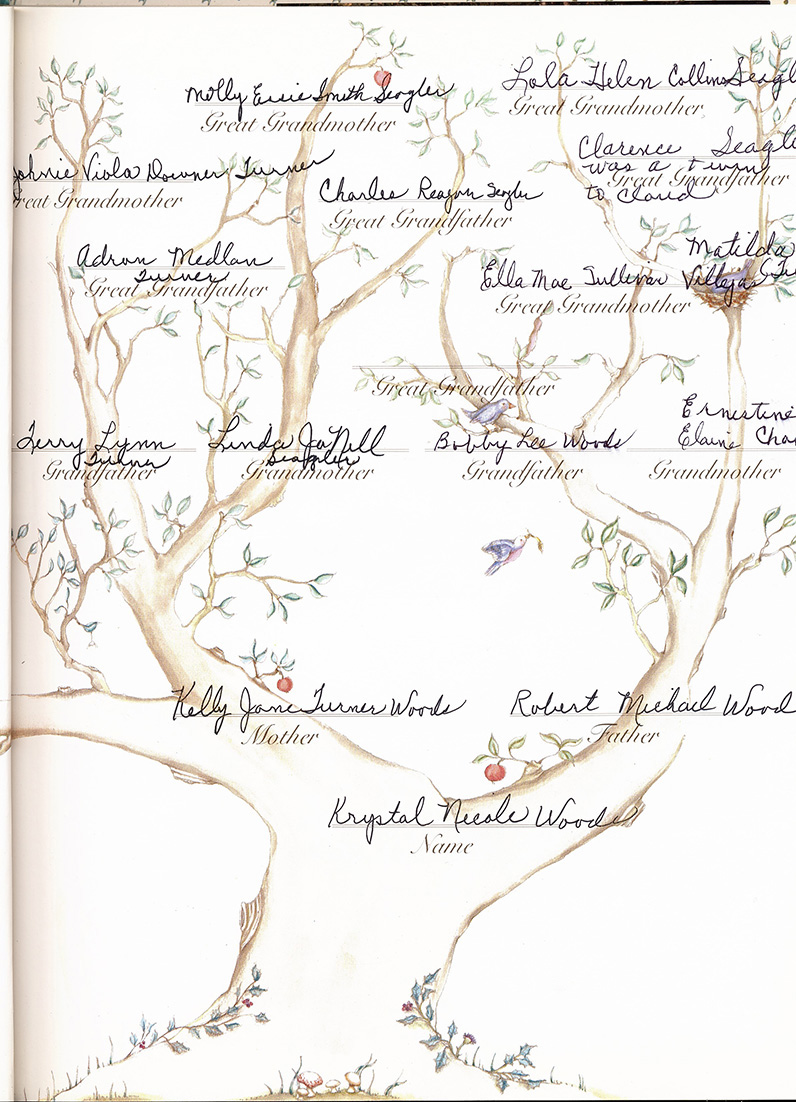 Molly Essie Smith Seagler
Great Grandmother
Lola Helen Collins Seagl
Great Grandmother
Johnie Viola Downer Turner
reat Grandmother
Charles Reagon Seagler
Great Grandfather
Clarence Seagle
was a twin
to Claud
Great Grandfather
Adron Medlan
Turner
Great Grandfather
Ella Mae Sullivan
Great Grandmother
Matilda
Villejas
Great Grandfather
Terry Lynn
Turner
Grandfather
Linda JaNell
Seagler
Grandmother
Bobby Lee Woods
Grandfather
Ernestine
Elaine Cha
Grandmother
Kelly Jane Turner Woods
Mother
Robert Michael Wood
Father
Krystal Necole Woods
Name